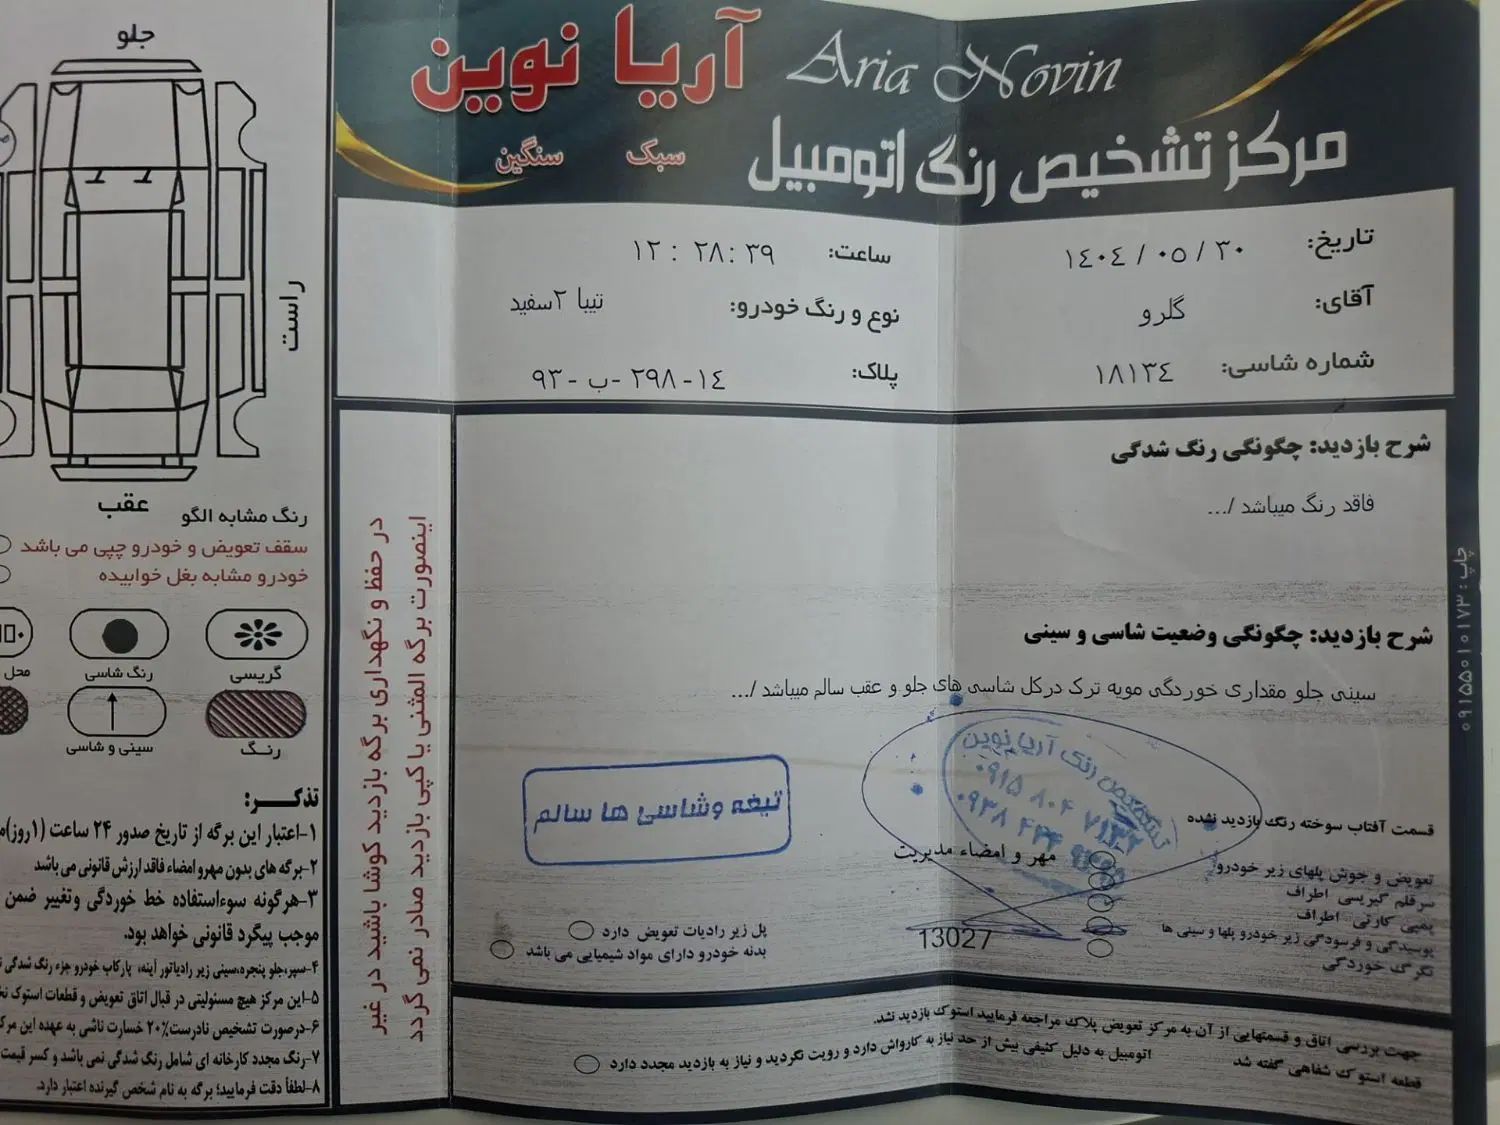 آریا نوین Aria Novin
سبک سنگین
مرکز تشخیص رنگ اتومبیل
تاریخ: ۱٤۰٤ / ۰٥ / ۳۰
ساعت: ۱۲ : ۲۸ : ۳۹
آقای: گلرو
نوع و رنگ خودرو: تیبا ۲سفید
شماره شاسی: ۱۸۱۳٤
پلاک: ۹۳ - ب- ۲۹۸ - ۱٤
شرح بازدید: چگونگی رنگ شدگی
فاقد رنگ میباشد /...
شرح بازدید: چگونگی وضعیت شاسی و سینی
سینی جلو مقداری خوردگی مویه ترک درکل شاسی های جلو و عقب سالم میباشد /...
تشخیص رنگ آریا نوین
تیغه وشاسی ها سالم
قسمت آفتاب سوخته رنگ بازدید نشده
مهر و امضاء مدیریت
تعویض و جوش پلهای زیر خودرو
سرقلم گیریسی اطراف
پمپی کارتی اطراف
پوسیدگی و فرسودگی زیر خودرو پلها و سینی ها
تگرگ خوردگی
13027
پل زیر رادیات تعویض دارد
بدنه خودرو دارای مواد شیمیایی می باشد
جهت بررسی اتاق و قسمتهایی از آن به مرکز تعویض پلاک مراجعه فرمایید استوک بازدید نشد.
قطعه استوک شفاهی گفته شد
اتومبیل به دلیل کثیفی بیش از حد نیاز به کارواش دارد و رویت نگردید و نیاز به بازدید مجدد دارد
چاپ : ۰۹۱۵۵۰۱۰۱۷۳
در حفظ و نگهداری برگه بازدید کوشا باشید در غیر
اینصورت برگه المثنی یا کپی بازدید صادر نمی گردد
جلو
راست
عقب
رنگ مشابه الگو
سقف تعویض و خودرو چپی می باشد
خودرو مشابه بغل خوابیده
گریسی
رنگ شاسی
محل
رنگ
سینی و شاسی
تذکر:
۱-اعتبار این برگه از تاریخ صدور ۲۴ ساعت (۱روز)
۲-برگه های بدون مهرو امضاء فاقد ارزش قانونی می باشد
۳-هرگونه سوءاستفاده خط خوردگی وتغییر ضمن
موجب پیگرد قانونی خواهد بود.
۴-سپر،جلو پنجره،سینی زیر رادیاتور آینه، پارکاب خودرو جزء رنگ شدگی
۵-این مرکز هیچ مسئولیتی در قبال اتاق تعویض و قطعات استوک
۶-درصورت تشخیص نادرست۲۰٪ خسارت ناشی به عهده این
۷-رنگ مجدد کارخانه ای شامل رنگ شدگی نمی باشد و کسر قیمت
۸-لطفاً دقت فرمایید؛ برگه به نام شخص گیرنده اعتبار دارد.